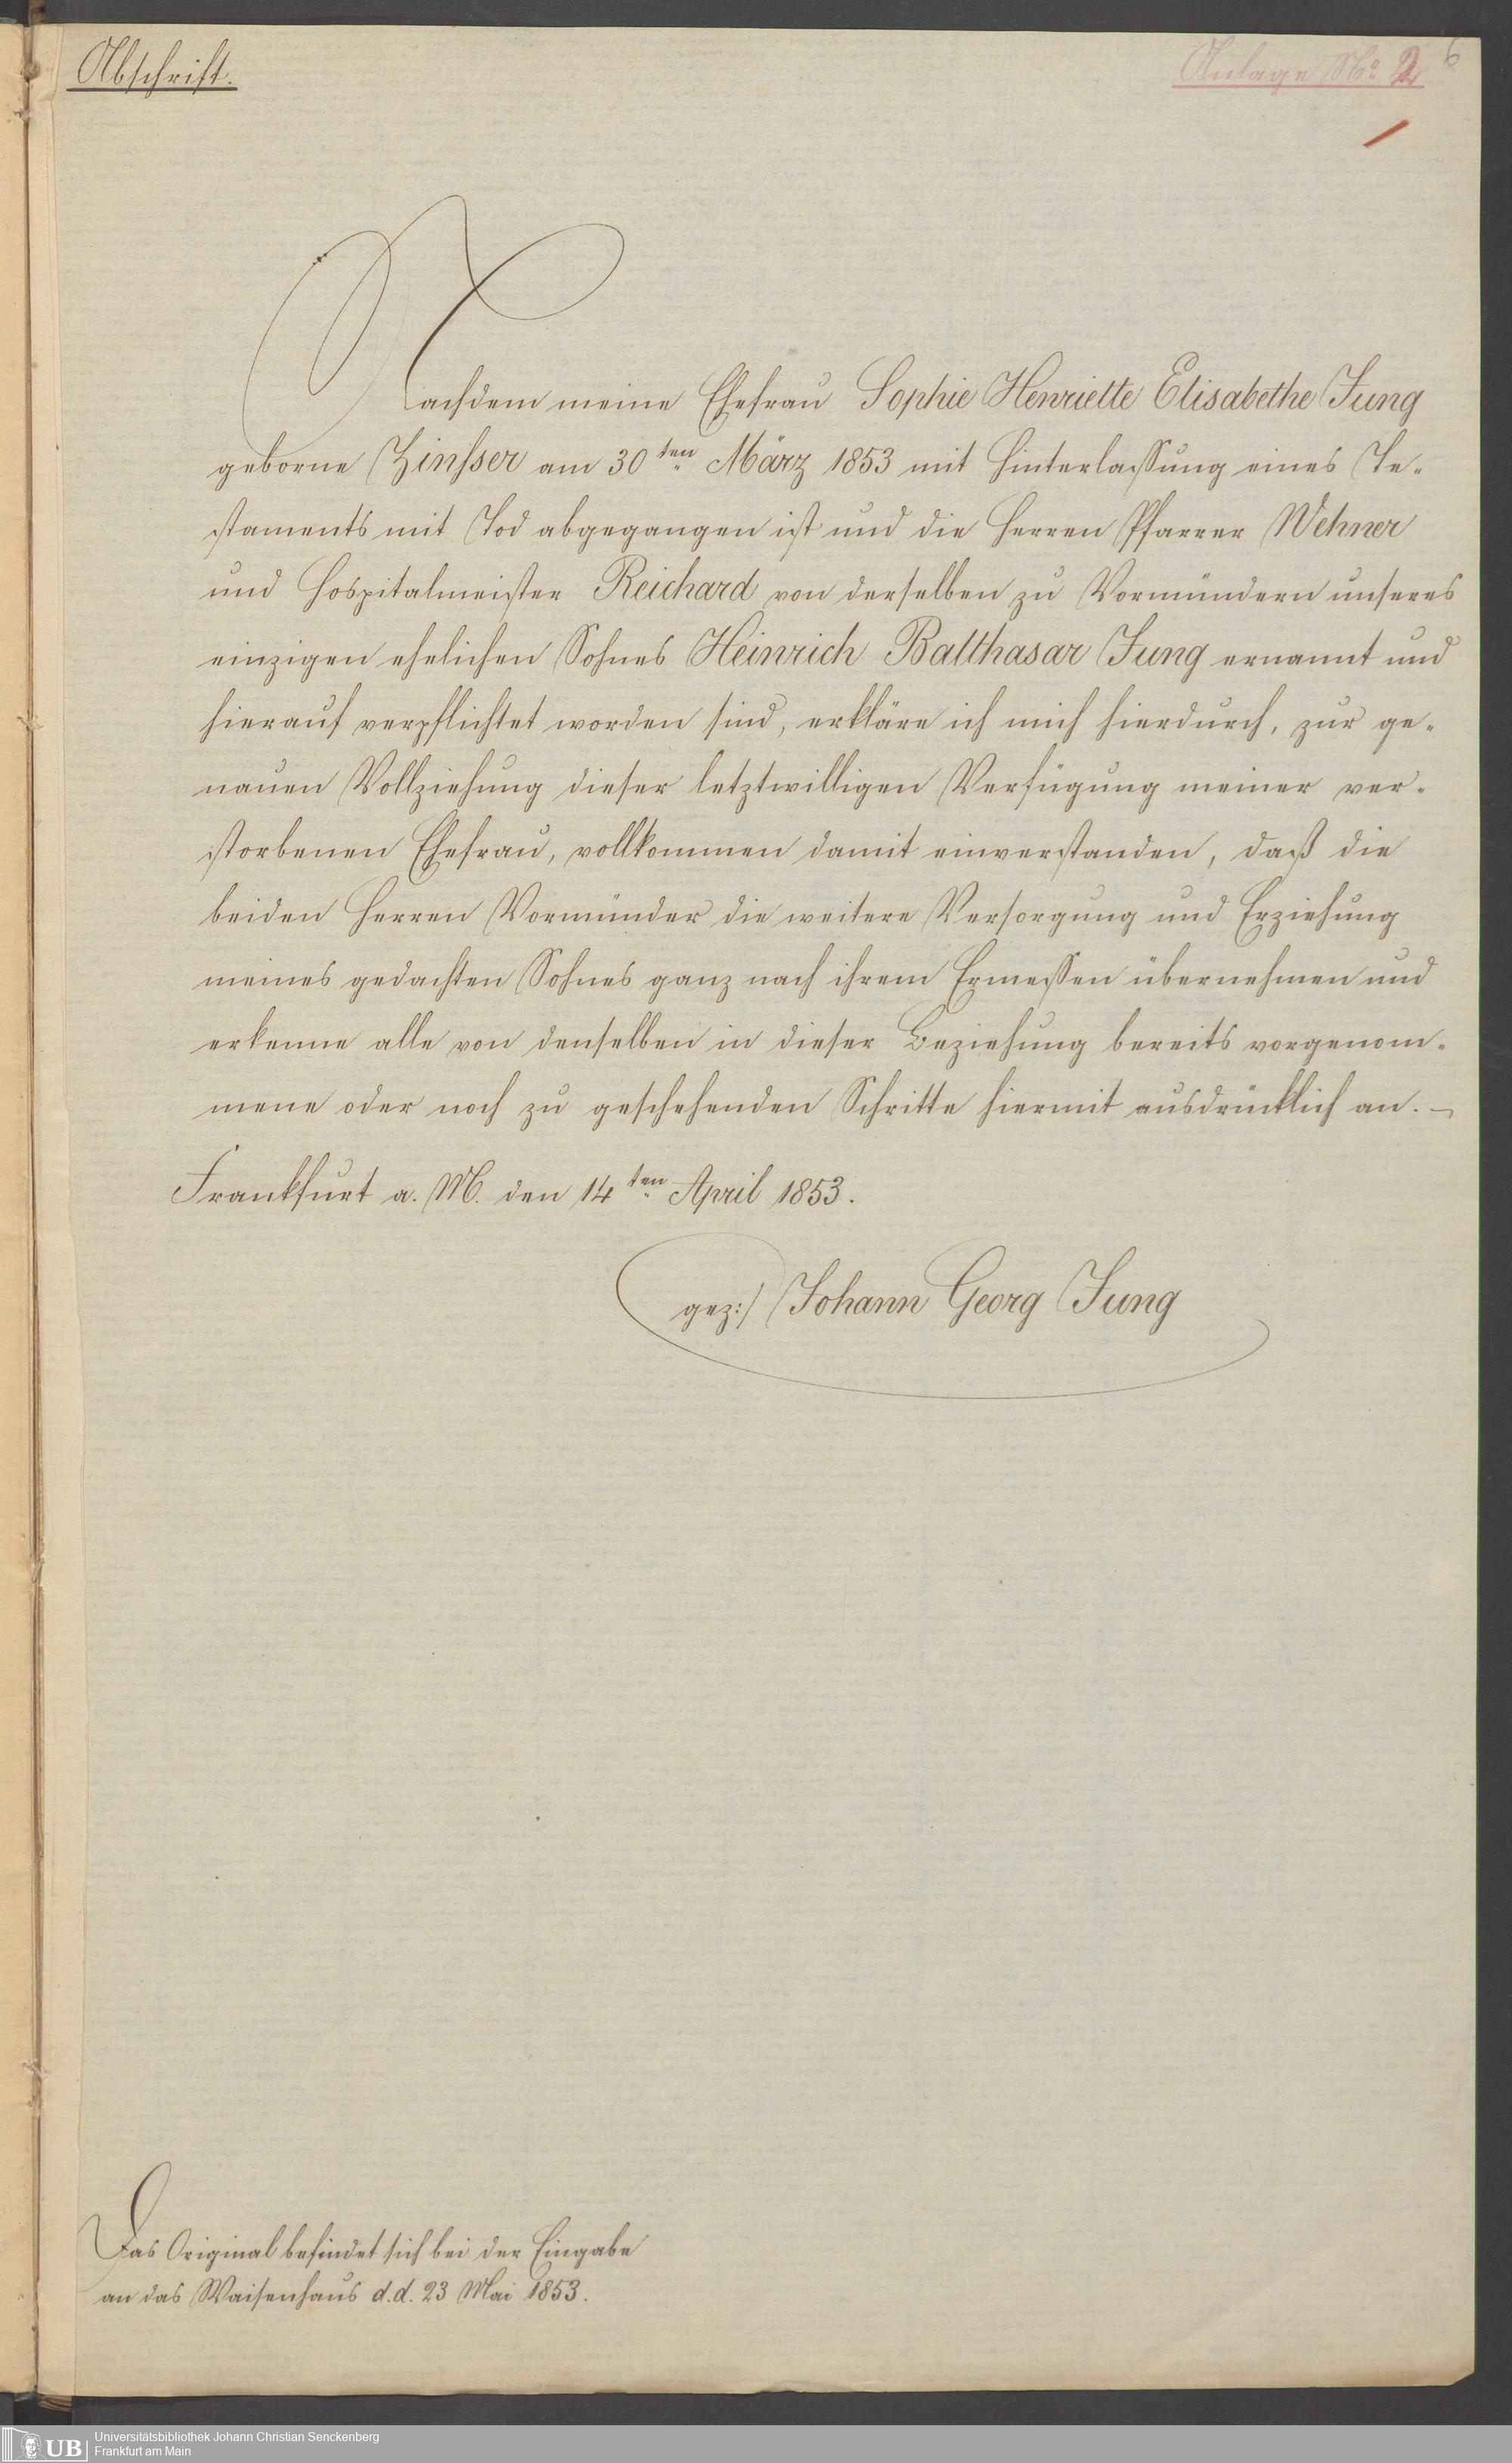 Abschrift.
Anlage No. 2
6
Nachdem meine Ehefrau Sophie Henriette Elisabethe Jung
geborne Zinsser am 30ten März 1853 mit Hinterlassung eines Te-
staments mit Tod abgegangen ist und die Herren Pfarrer Wehner
und Hospitalmeister Reichard von derselben zu Vormündern unseres
einzigen ehelichen Sohnes Heinrich Balthasar Jung ernannt und
hierauf verpflichtet worden sind, erkläre ich mich hierdurch, zur ge-
nauen Vollziehung dieser letztwilligen Verfügung meiner ver-
storbenen Ehefrau, vollkommen damit einverstanden, daß die
beiden Herren Vormünder die weitere Versorgung und Erziehung
meines gedachten Sohnes ganz nach ihrem Ermessen übernehmen und
erkenne alle von denselben in dieser Beziehung bereits vorgenom-
mene oder noch zu geschehenden Schritte hiermit ausdrücklich an. –
Frankfurt a. M. den 14ten April 1853.
gez:/ Johann Georg Jung
Das Original befindet sich bei der Eingabe
an das Waisenhaus d.d. 23 Mai 1853.
UB
Universitätsbibliothek Johann Christian Senckenberg
Frankfurt am Main